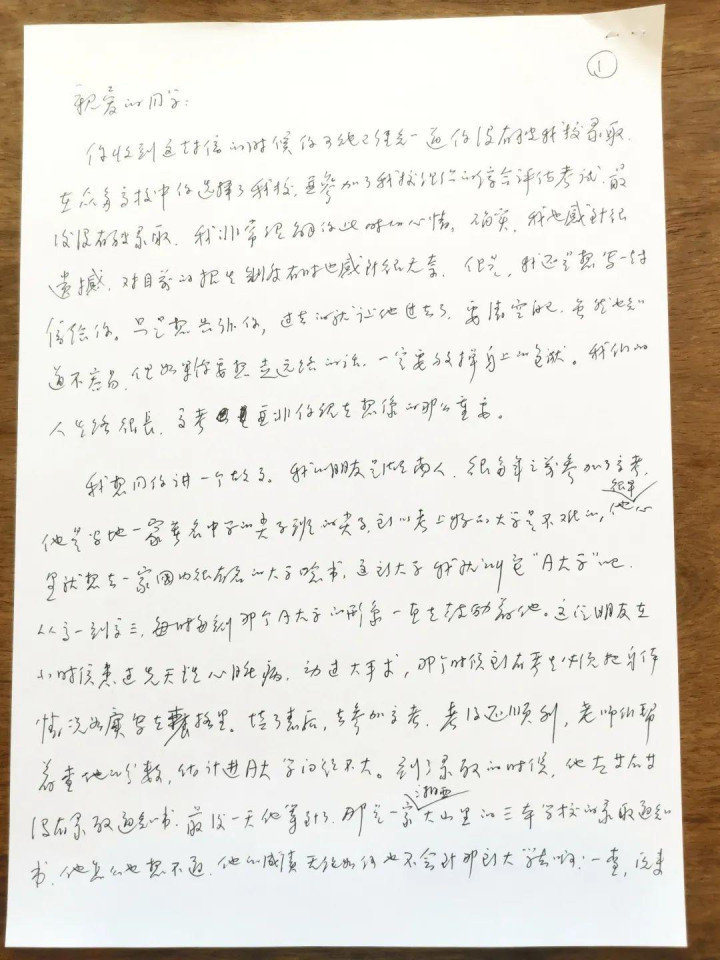 1
亲爱的同学:
你收到这封信的时候你可能已经知道你没有被我校录取.
在众多高校中你选择了我校, 并参加了我校组织的综合评估考试, 最
后没有被录取. 我非常理解你此时的心情, 确实, 我也感到很
遗憾, 对目前的招生制度有时也感到很无奈. 但是, 我还是想写一封
信给你。只是想告诉你, 过去的就让他过去了, 要清空自己, 虽然也知
道不容易, 但如果你要想走远路的话, 一定要放掉身上的包袱。我们的
人生路很长, 高考并非你现在想像的那么重要。
我想同你讲一个故事。我的朋友是湖南人, 很多年之前参加了高考,
他是当地一家著名中学的尖子班的尖子, 所以考上好的大学是不难的, 他很早心
里就想去一家国内很有名的大学念书, 这所大学我就叫它“A大学”吧.
从高一到高三, 每时每刻那个A大学的形象一直在鼓励着他。这位朋友在
小时候患过先天性心脏病, 动过大手术, 那个时候所有考生必须把身体
情况如实写在表格里。填了表后, 去参加高考, 考得还顺利, 老师们帮
着查他的分数, 估计进A大学问题不大。到了录取的时候, 他左等右等
没有录取通知书. 最后一天他等到了, 那是一家湘西大山里的三本学校的录取通知
书. 他怎么也想不通, 他的成绩无论如何也不会到那所大学去啊! 一查, 原来